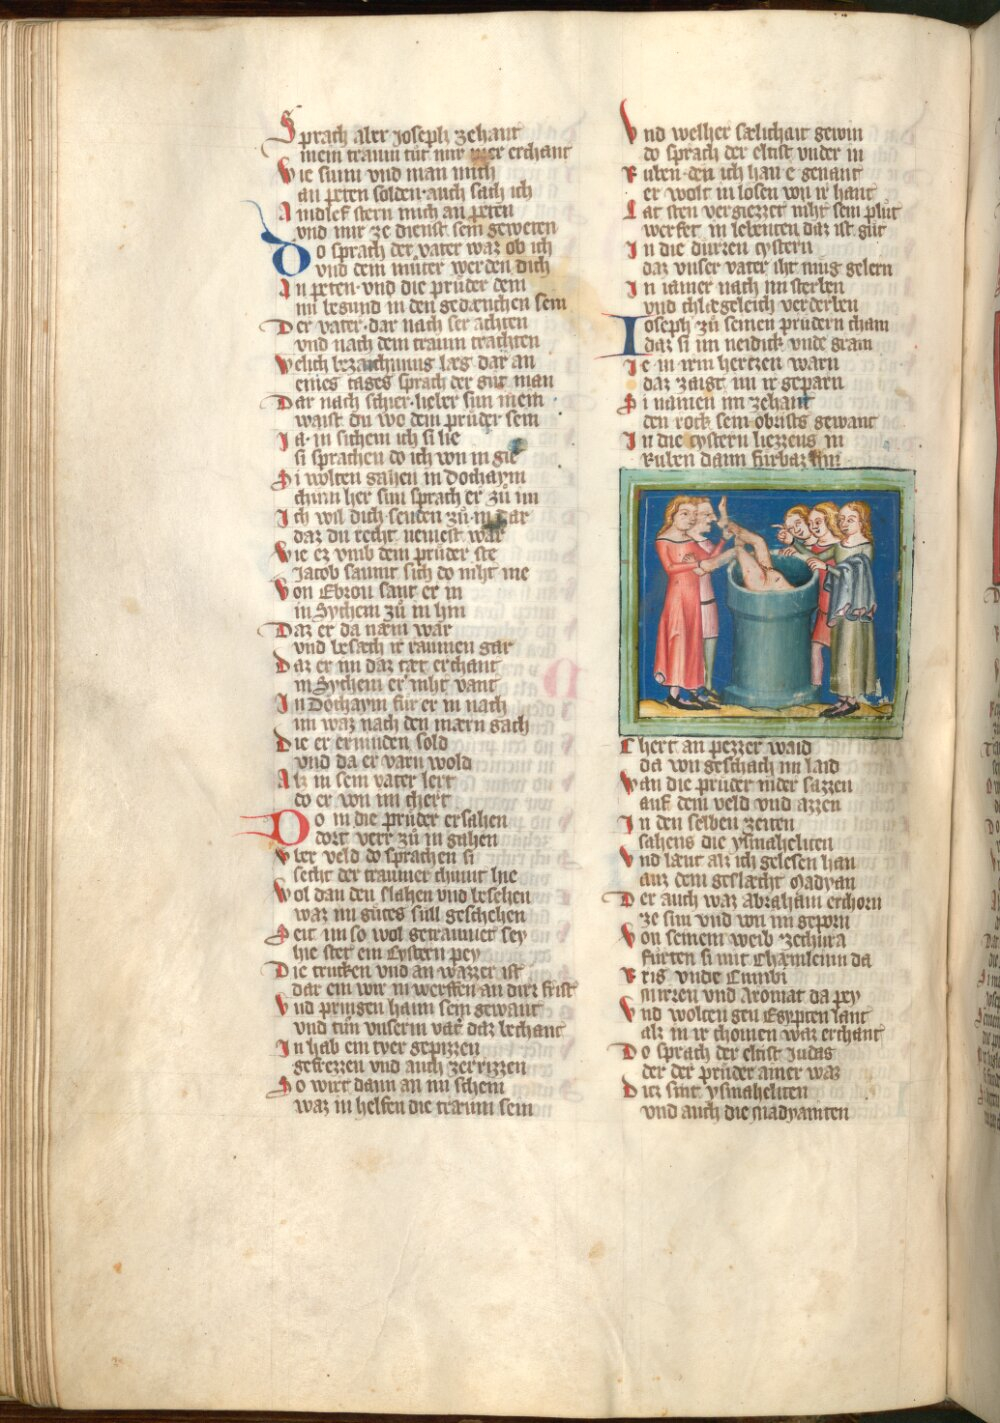 Sprach aber Joseph zehant
mein traum tůt mir mer erchant
Wie sunn vnd man mich
an peten solden auch sach ich
Aindlef stern mich an peten
vnd mir ze dienst sein geweten
Do sprach der vater waz ob ich
vnd dein můter werden dich
An peten vnd die průder dein
im begund in den gedænchen sein
Der vater dar nach ser achten
vnd nach dem traum trachten
Welich bezaichnung læg dar an
eines tages sprach der gůt man
Dar nach schier lieber sun mein
waist du wo dein průder sein
Ja in sichem ich si lie
si sprachen do ich von in gie
Si wolten gahen in Dochaym
chum her sun sprach er zů im
Ich wil dich senden zů in dar
daz du recht nemest war
Wie ez vmb dein průder ste
Jacob saumt sich do niht me
Von Ebron sant er in
in Sychem zů in hin
Daz er da næm war
vnd besæch ir raumen gar
Daz er im daz tæt erchant
in Sychem er niht vant
In Dochaym fůr er in nach
im waz nach den mærn gach
Die er erminden sold
vnd da er varn wold
Alz in sein vater lert
do er von im chert
Do in die průder ersahen
dort verr zů in gahen
Vber veld do sprachen si
secht der traumer chumt hie
Wol dan den slahen vnd besehen
waz im gůtes sůll geschehen
Seit im so wol getraumet sey
hie stet ein Cystern pey
Die trucken vnd an wazzer ist
dar ein wir in werffen an dirr frist
Vnd pringen haim sein gewant
vnd tůn vnserm vater daz bechant
In hab ein tyer gepizzen
gefrezzen vnd auch zerrizzen
So wirt dann an im schein
waz in helfen die træum sein
Vnd welher sælichait gewin
do sprach der eltist vnder in
Ruben den ich han e genant
er wolt in losen von ir hant
Lat sten vergiezzet niht sein plůt
werfet in lebenten daz ist gůt
In die durren cystern
daz vnser vater iht mug gelern
In iamer nach im sterben
vnd chlægeleich verderben
Joseph zů seinen průdern cham
daz si im neidick vnde gram
Je in irm hertzen warn
daz zaigt im ir geparn
Si namen im zehant
den rock sein obrists gewant
In die cystern liezzens in
Ruben dann fůrbaz hin
Chert an pezzer waid
da von geschach im laid
Wan die průder nider sazzen
auf dem veld vnd azzen
In den selben zeiten
sahens die ysmaheliten
Vnd læut alz ich gelesen han
auz dem geslæcht Madyan
Der auch waz Abraham erchorn
ze sun vnd von im geporn
Von seinem weib Zethura
fůrten si mit Chæmleinn da
Ris vnde Cimbi
mirren vnd Aromat da pey
Vnd wolten gen Egypten lant
alz in ir chomen waz erchant
Do sprach der eltist Judas
der der průder ainer waz
Ditz sint ysmaheliten
vnd auch die Madyaniten